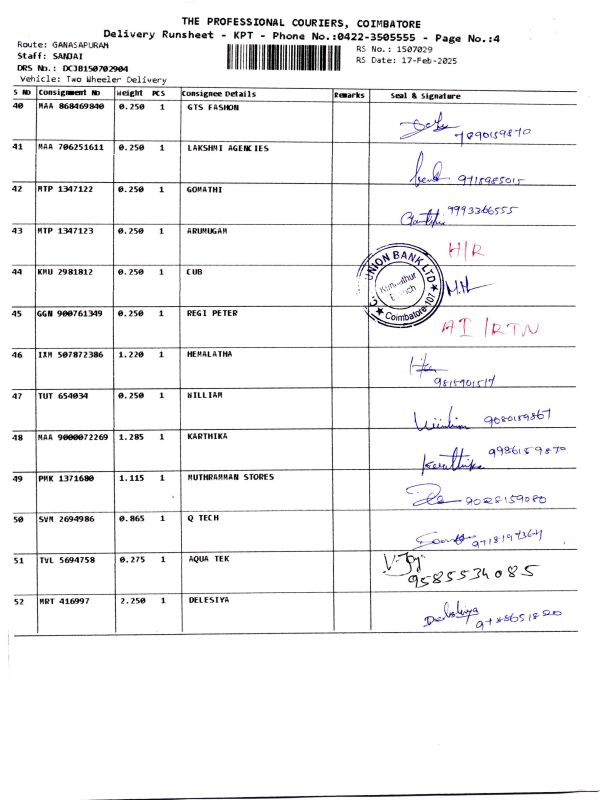 THE PROFESSIONAL COURIERS, COIMBATORE
Delivery Runsheet - KPT - Phone No.:0422-3505555 - Page No.:4
Route: GANASAPURAM
RS No.: 1507029
Staff: SANJAI
RS Date: 17-Feb-2025
DRS No.: DCJB150702904
Vehicle: Two Wheeler Delivery
S No Consignment No Weight PCS Consignee Details Remarks Seal & Signature
40 MAA 868469840 0.250 1 GTS FASHON
7890159870
41 MAA 706251611 0.250 1 LAKSHMI AGENCIES
9715985015
42 MTP 1347122 0.250 1 GOMATHI
9993366555
43 MTP 1347123 0.250 1 ARUMUGAM H/R
44 KMU 2981812 0.250 1 CUB
UNION BANK LTD
Branch
Coimbatore-107
45 GGN 900761349 0.250 1 REGI PETER AI/RTN
46 IXM 507872386 1.220 1 HEMALATHA
9815901517
47 TUT 654034 0.250 1 WILLIAM
9080159867
48 MAA 9000072269 1.285 1 KARTHIKA
9986159870
49 PMK 1371680 1.115 1 MUTHRAMMAN STORES
9028159080
50 SVM 2694986 0.865 1 Q TECH
51 TVL 5694758 0.275 1 AQUA TEK
9585534085
52 MRT 416997 2.250 1 DELESIYA